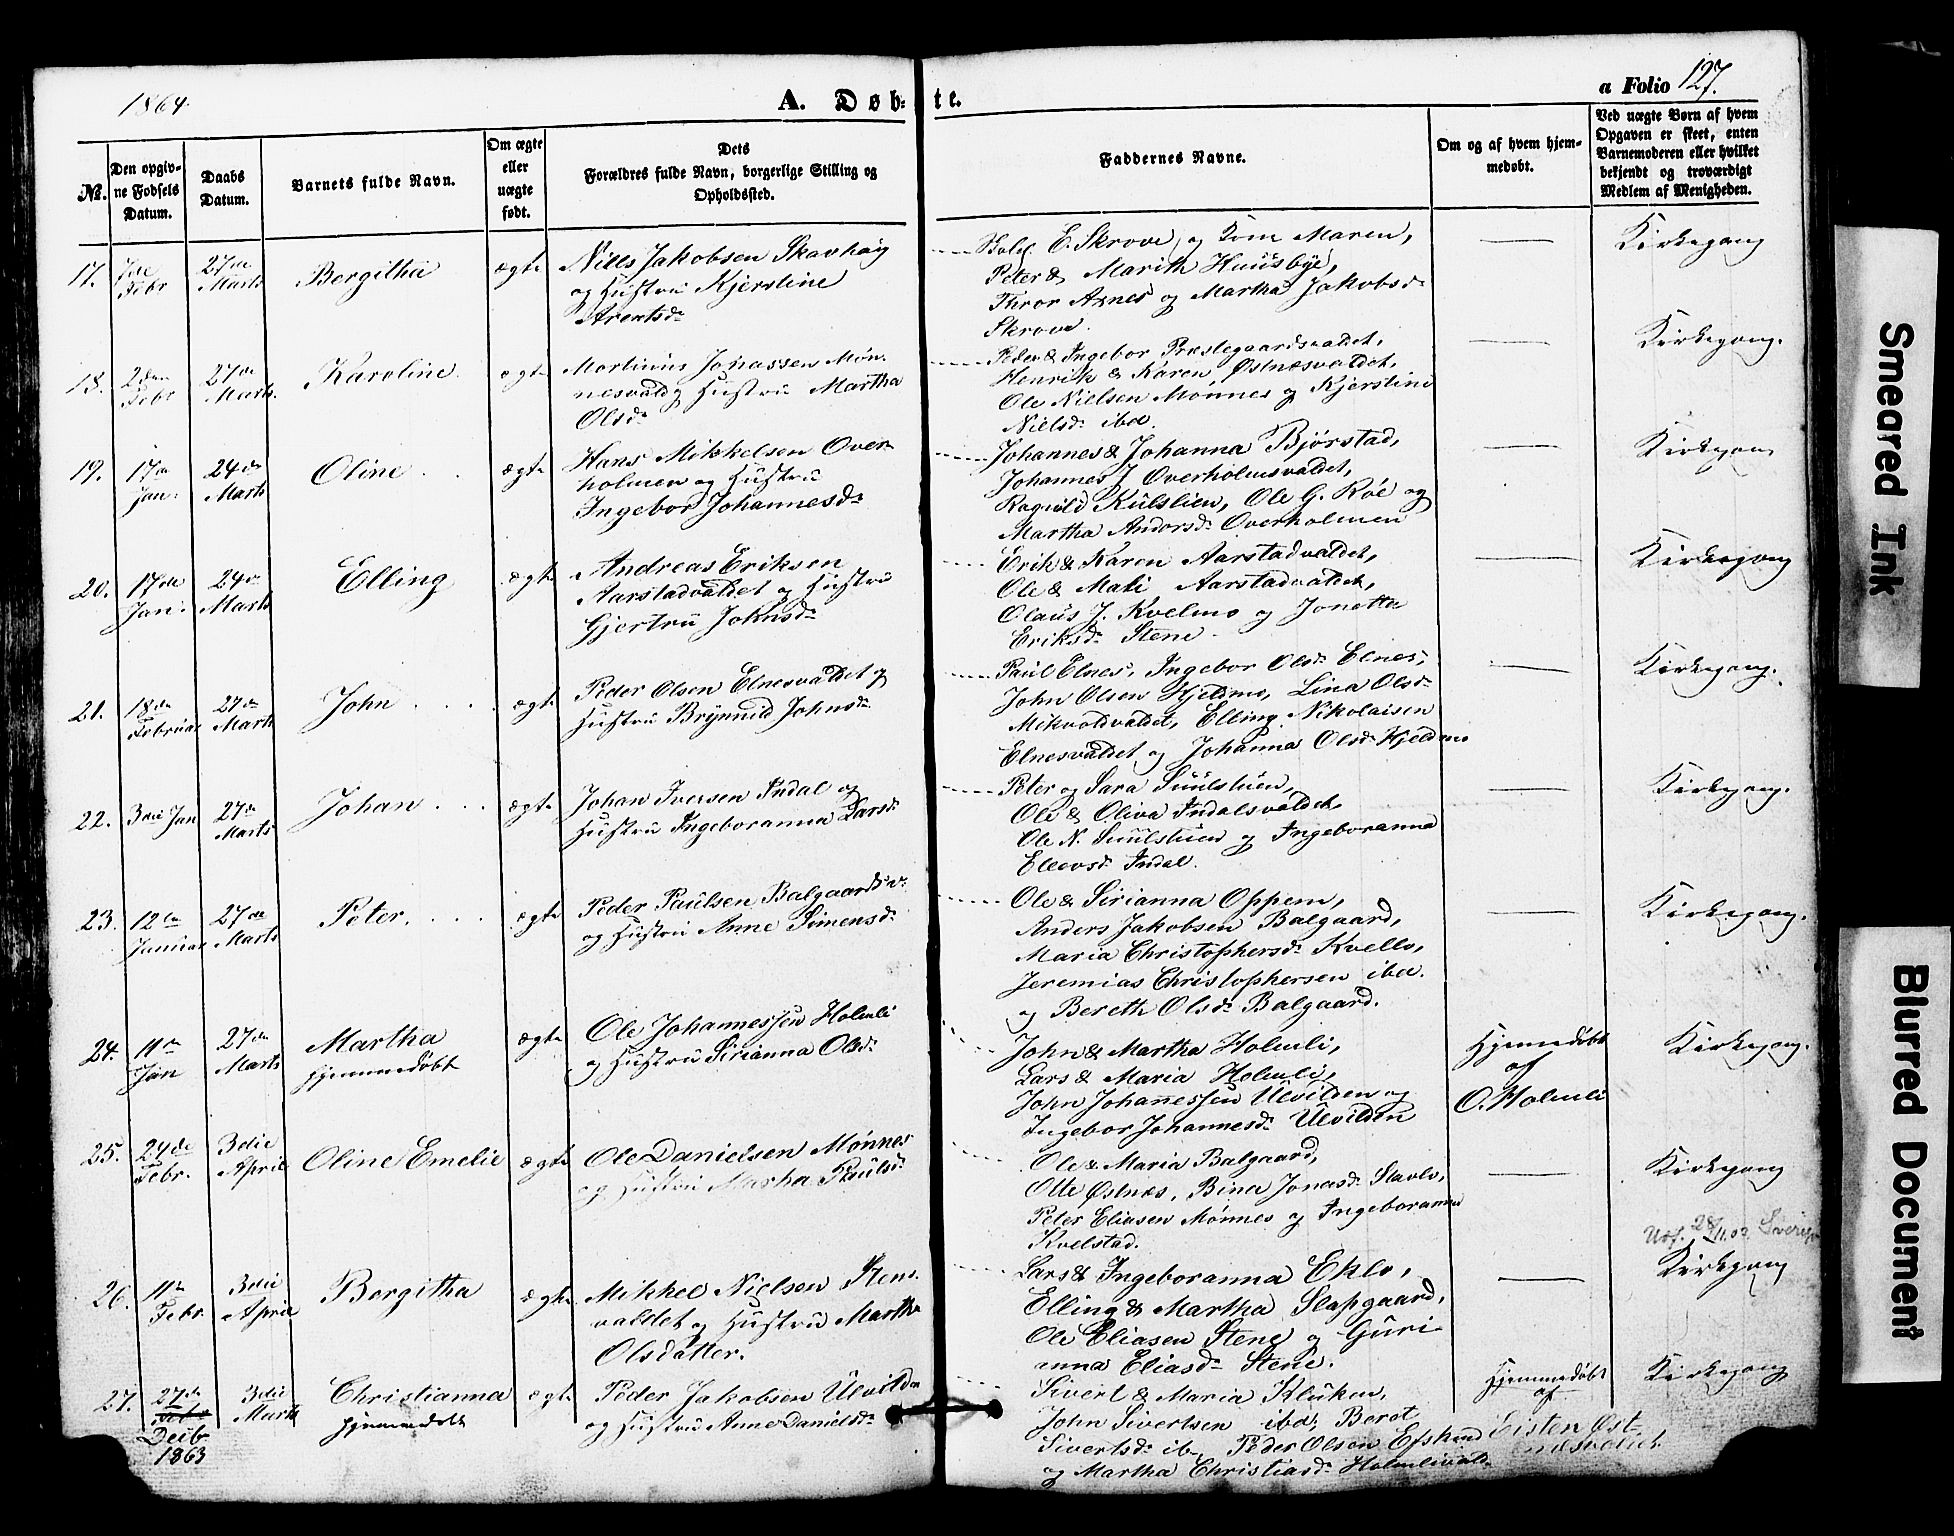 1864.
A. Døb-te.
a Folio 127.
No.
Den opgivne Fødsels Datum.
Daabs Datum.
Barnets fulde Navn.
Om ægte eller uægte født.
Dets Forældres fulde Navn, borgerlige Stilling og Opholdssted.
Faddernes Navne.
Om og af hvem hjemmedøbt.
Ved uægte Børn af hvem Opgaven er skeet, enten Barnemoderen eller hvilket bekjendt og troværdigt Medlem af Menigheden.
17.
Febr
27de Marts
Bergitha
ægte
Niels Jakobsen Skavhaug
og Hustru Kjerstine
Arentsdr
E. Skrove og Kone Maren,
Peter & Marith Huusbye,
Arnes og Martha Jakobsdr
Skrove.
Kirkegang
18.
Febr
27de Marts.
Karoline
ægte
Martinus Johassen Møn-
nesvald og Hustru Martha
Olsdr
Peder & Ingebor Præstegaardsvaldet,
Henrik & Karen Østnæsvaldet,
Ole Nielsen Mønnes og Kjerstine
Nielsdr ibd.
Kirkegang.
19.
17de Jan.
24de Marts
Oline
ægte
Hans Mikkelsen Over-
holmen og Hustru
Ingebor Johannesdr
Johannes & Johanna Bjørstad,
Johannes J Overholmsvaldet,
Ragnild Kulslien, Ole G. Røe og
Martha Andersdr Overholmen
Kirkegang
20.
17de Jan.
24de Marts
Elling
ægte
Andreas Eriksen
Aarstadvaldet og Hustru
Gjertru Johnsdr
Erik & Karen Aarstadvaldet,
Ole & Mali Aarstadvaldet,
Olaus J. Kvelmo og Jonetta
Eriksdr Stene.
Kirkegang
21.
18de Februar
27de Marts
John
ægte
Peder Olsen Elnesvaldet og
Hustru Brynnild Johnsdr
Paul Elnes, Ingebor Olsdr Elnes,
John Olsen Hjeldmo, Lina Olsdr
Mikvoldvaldet, Elling Nikolaisen
Elnesvaldet og Johanna Olsdr Hjeldmo
Kirkegang.
22.
3die Jan
27de Marts
Johan
ægte
Johan Iversen Indal og
Hustru Ingeboranna Larsdr
Peter og Sara Suulstuen,
Ole & Oliva Indalsvaldet,
Ole N. Suulstuen og Ingeboranna
Ellevsdr Indal.
Kirkegang.
23.
12te Januar
27de Marts
Peter
ægte
Peder Paulsen Balgaardsv.
og Hustru Anne Simensdr
Ole & Sirianna Oppem,
Anders Jakobsen Balgaard,
Maria Christophersdr Kvello,
Jeremias Christophersen ibd.
og Bereth Olsdr Balgaard.
Kirkegang.
24.
11te Jan
27de Marts
Martha
hjemmedøbt
ægte
Ole Johannessen Holmli
og Hustru Sirianna Olsdr
John & Martha Holmli,
Lars & Maria Holmli,
John Johannessen Ulvilden og
Ingebor Johannesdr Ulvilden
Hjemmedøbt
af
O. Holmli
Kirkegang.
25.
24de Febr.
3die April
Oline Emelie
ægte
Ole Danielsen Mønnes
og Hustru Martha Paulsdr
Ole & Maria Balgaard,
Otte Østnes, Bina Jonasdr Slavlo,
Peter Eliasen Mønnes og Ingeboranna
Kvelstad.
Kirkegang
Utf. 28/11.02
26.
11te Febr.
3die April
Bergitha
ægte
Mikkel Nielsen Stene-
valdet og Hustru Martha
Olsdatter.
Lars & Ingeboranna Eklo,
Elling & Martha Slapgaard,
Ole Eliasen Stene og Guri-
anna Eliasdr Stene.
Kirkegang
27.
27de
Decbr
1863
3die Marts
Christianna
hjemmedøbt
ægte
Peder Jakobsen Ulvilden
og Hustru Anne Danielsdr
Sivert & Maria Kluken,
John Sivertsen ibd, Beret
Sivertsdr ib, Peder Olsen
og Martha Christiansdr
Hjemmedøbt
af
Eisten Øst-
nesvaldet
Kirkegang
Smeared Ink
Blurred Document